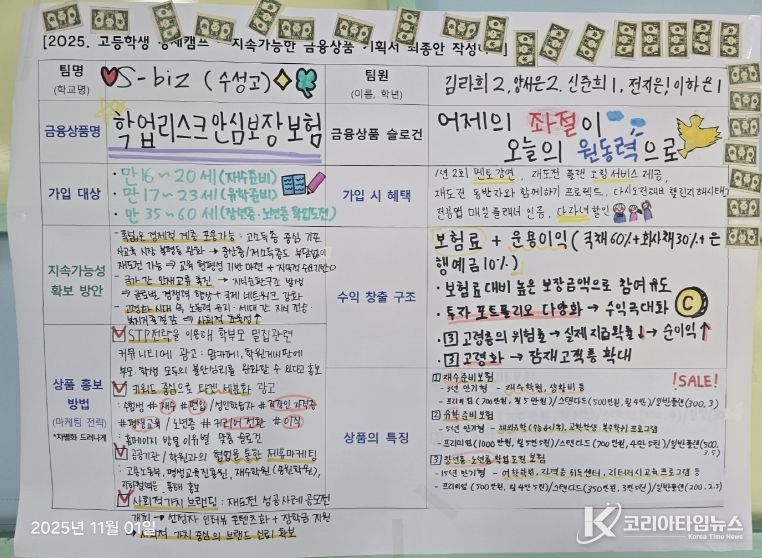 [2025. 고등학생 경제캠프 - 지속가능한 금융상품 기획서 최종안 작성
팀명
(학교명)
S-biz (수성고)
팀원
(이름, 학년)
김라희 2, 양서은 2, 신준희 1, 전지은 1, 이하은 1
금융상품명
학업리스크안심보장보험
금융상품 슬로건
어제의 좌절이
오늘의 원동력으로
가입 대상
• 만 16~20세 (재수준비)
• 만 17~23세 (유학준비)
• 만 35~60세 (장년층·노년층 학업도전)
가입 시 혜택
1년 2회 멘토강연, 재도전 플랜 코칭 서비스 제공,
재도전 동반자와 함께하기 프로젝트, 다시도전해보 챌린지
인증, 다자녀할인
지속가능성
확보 방안
폭넓은 경제적 계층 포용가능 : 고소득층 중심 기존
사교육 시장 불평등 완화 → 중산층/저소득층도 부담없이
재도전 가능 → 교육 형평성 기반 마련 + 지속적 수요기반
국가간 인재교류 촉진 → 지식순환구조 발생
→ 글로벌 경쟁력 향상 + 국제 네트워크 강화
고령화 시대 속 노동력 유지·세대 간 지식 전승
→ 사회적 효용성↑
수익 창출 구조
보험료 + 운용이익 (국채 60% + 회사채 30% + 은
행예금 10%)
• 보험료 대비 높은 보장금액으로 참여 유도
• 투자 포트폴리오 다양화 → 수익극대화
• ③ 고령층의 위험률 → 실제 지급확률↓ → 순이익↑
• ③ 고령화 → 잠재고객층 확대
상품 홍보
방법
(마케팅 전략)
*차별화 드러나게
STP전략을 이용해 학부모 밀집관련
커뮤니티에 광고 : 맘카페, 학원게시판에
부모·학생 모두의 불안심리를 완화할 수 있다고 홍보
키워드 중심으로 타겟 세분화 광고
: 수험생 #재수 #편입 / 성인학습자 #직장인 자격증
#평생교육 / 노년층 #커리어 전환 #이직
: 홈페이지 방문 이유별 맞춤 슬로건
공공기관 / 학원과의 협업을 통한 제휴마케팅
: 고용노동부, 평생교육진흥원, 재수학원 (종로학원),
통해 홍보
사회적가치 브랜딩 : 재도전 성공사례 공모전
개최 → 선정자 인터뷰 콘텐츠화 + 장학금 지원
→ 사회적 가치 중심의 브랜드 신뢰 확보
상품의 특징
!SALE!
① 재수준비보험
- 3년 만기형 - 재수학원, 생활비 등
- 프리미엄 (700만원, 월 5만원) / 스탠다드 (500만원, 월 4만) / 일반플랜 (300, 3)
② 유학 준비보험
- 5년 만기형 - 프로그램
- 프리미엄 (1000만 원, 월 5만 5천) / 스탠다드 (700만 원, 4만 5천) / 일반플랜 (500, 3.5)
③ 장년층·노년층 학업도전 보험
- 15년 만기형 - 어학학원, 자격증 취득센터, 리터러시교육프로그램 등
- 프리미엄 (500만원, 월 4만 5천) / 스탠다드 (350만원, 3만 5천) / 일반플랜 (200, 2.5)
2025년 11월 01일
K 코리아타임뉴스
Korea Time News